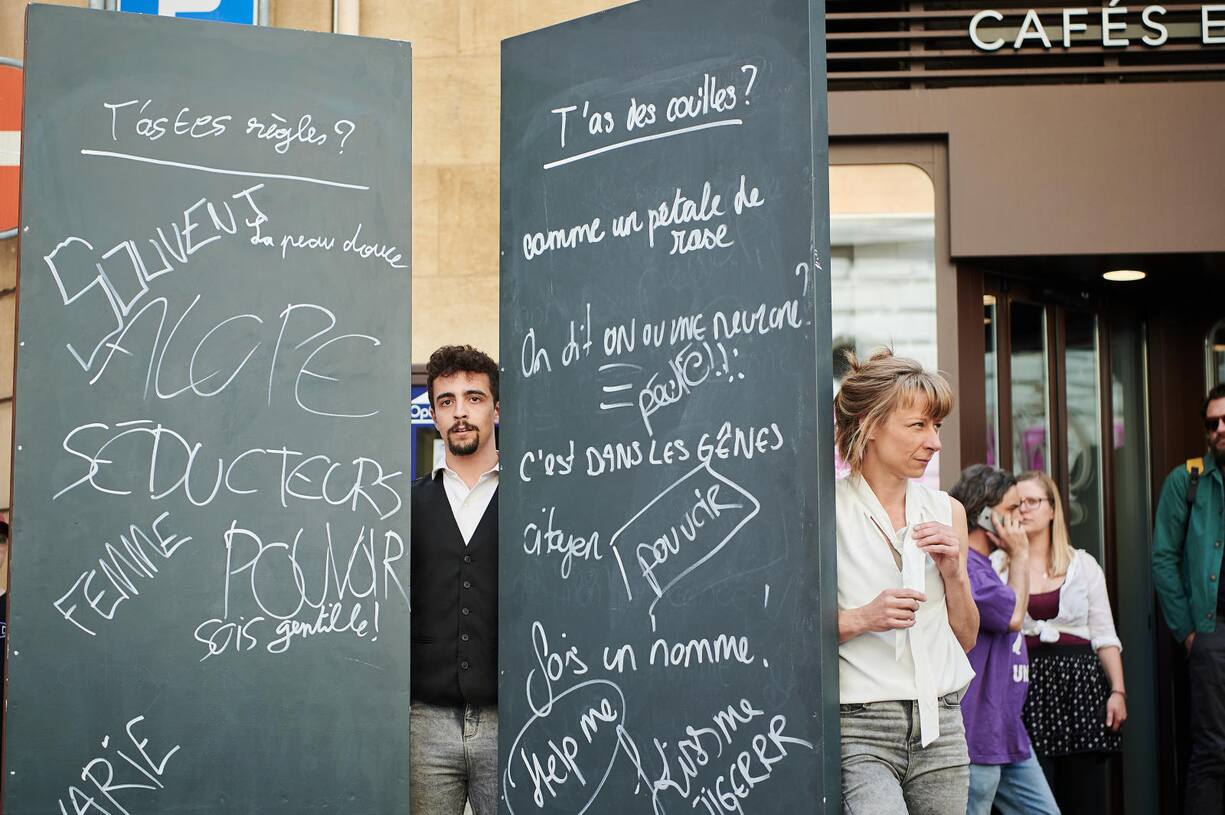 T'as tes règles ?
SOUVENT
la peau douce
SALOPE
SÉDUCTEURS
FEMME
POUVOIR
sois gentille !
MARIE
T'as des couilles ?
comme un pétale de
rose
On dit ON ou UNE neurone ?
=
c'est DANS LES GÊNES
citoyen
pouvoir
Sois un homme.
Help me
P
CAFÉS E
Op
UN